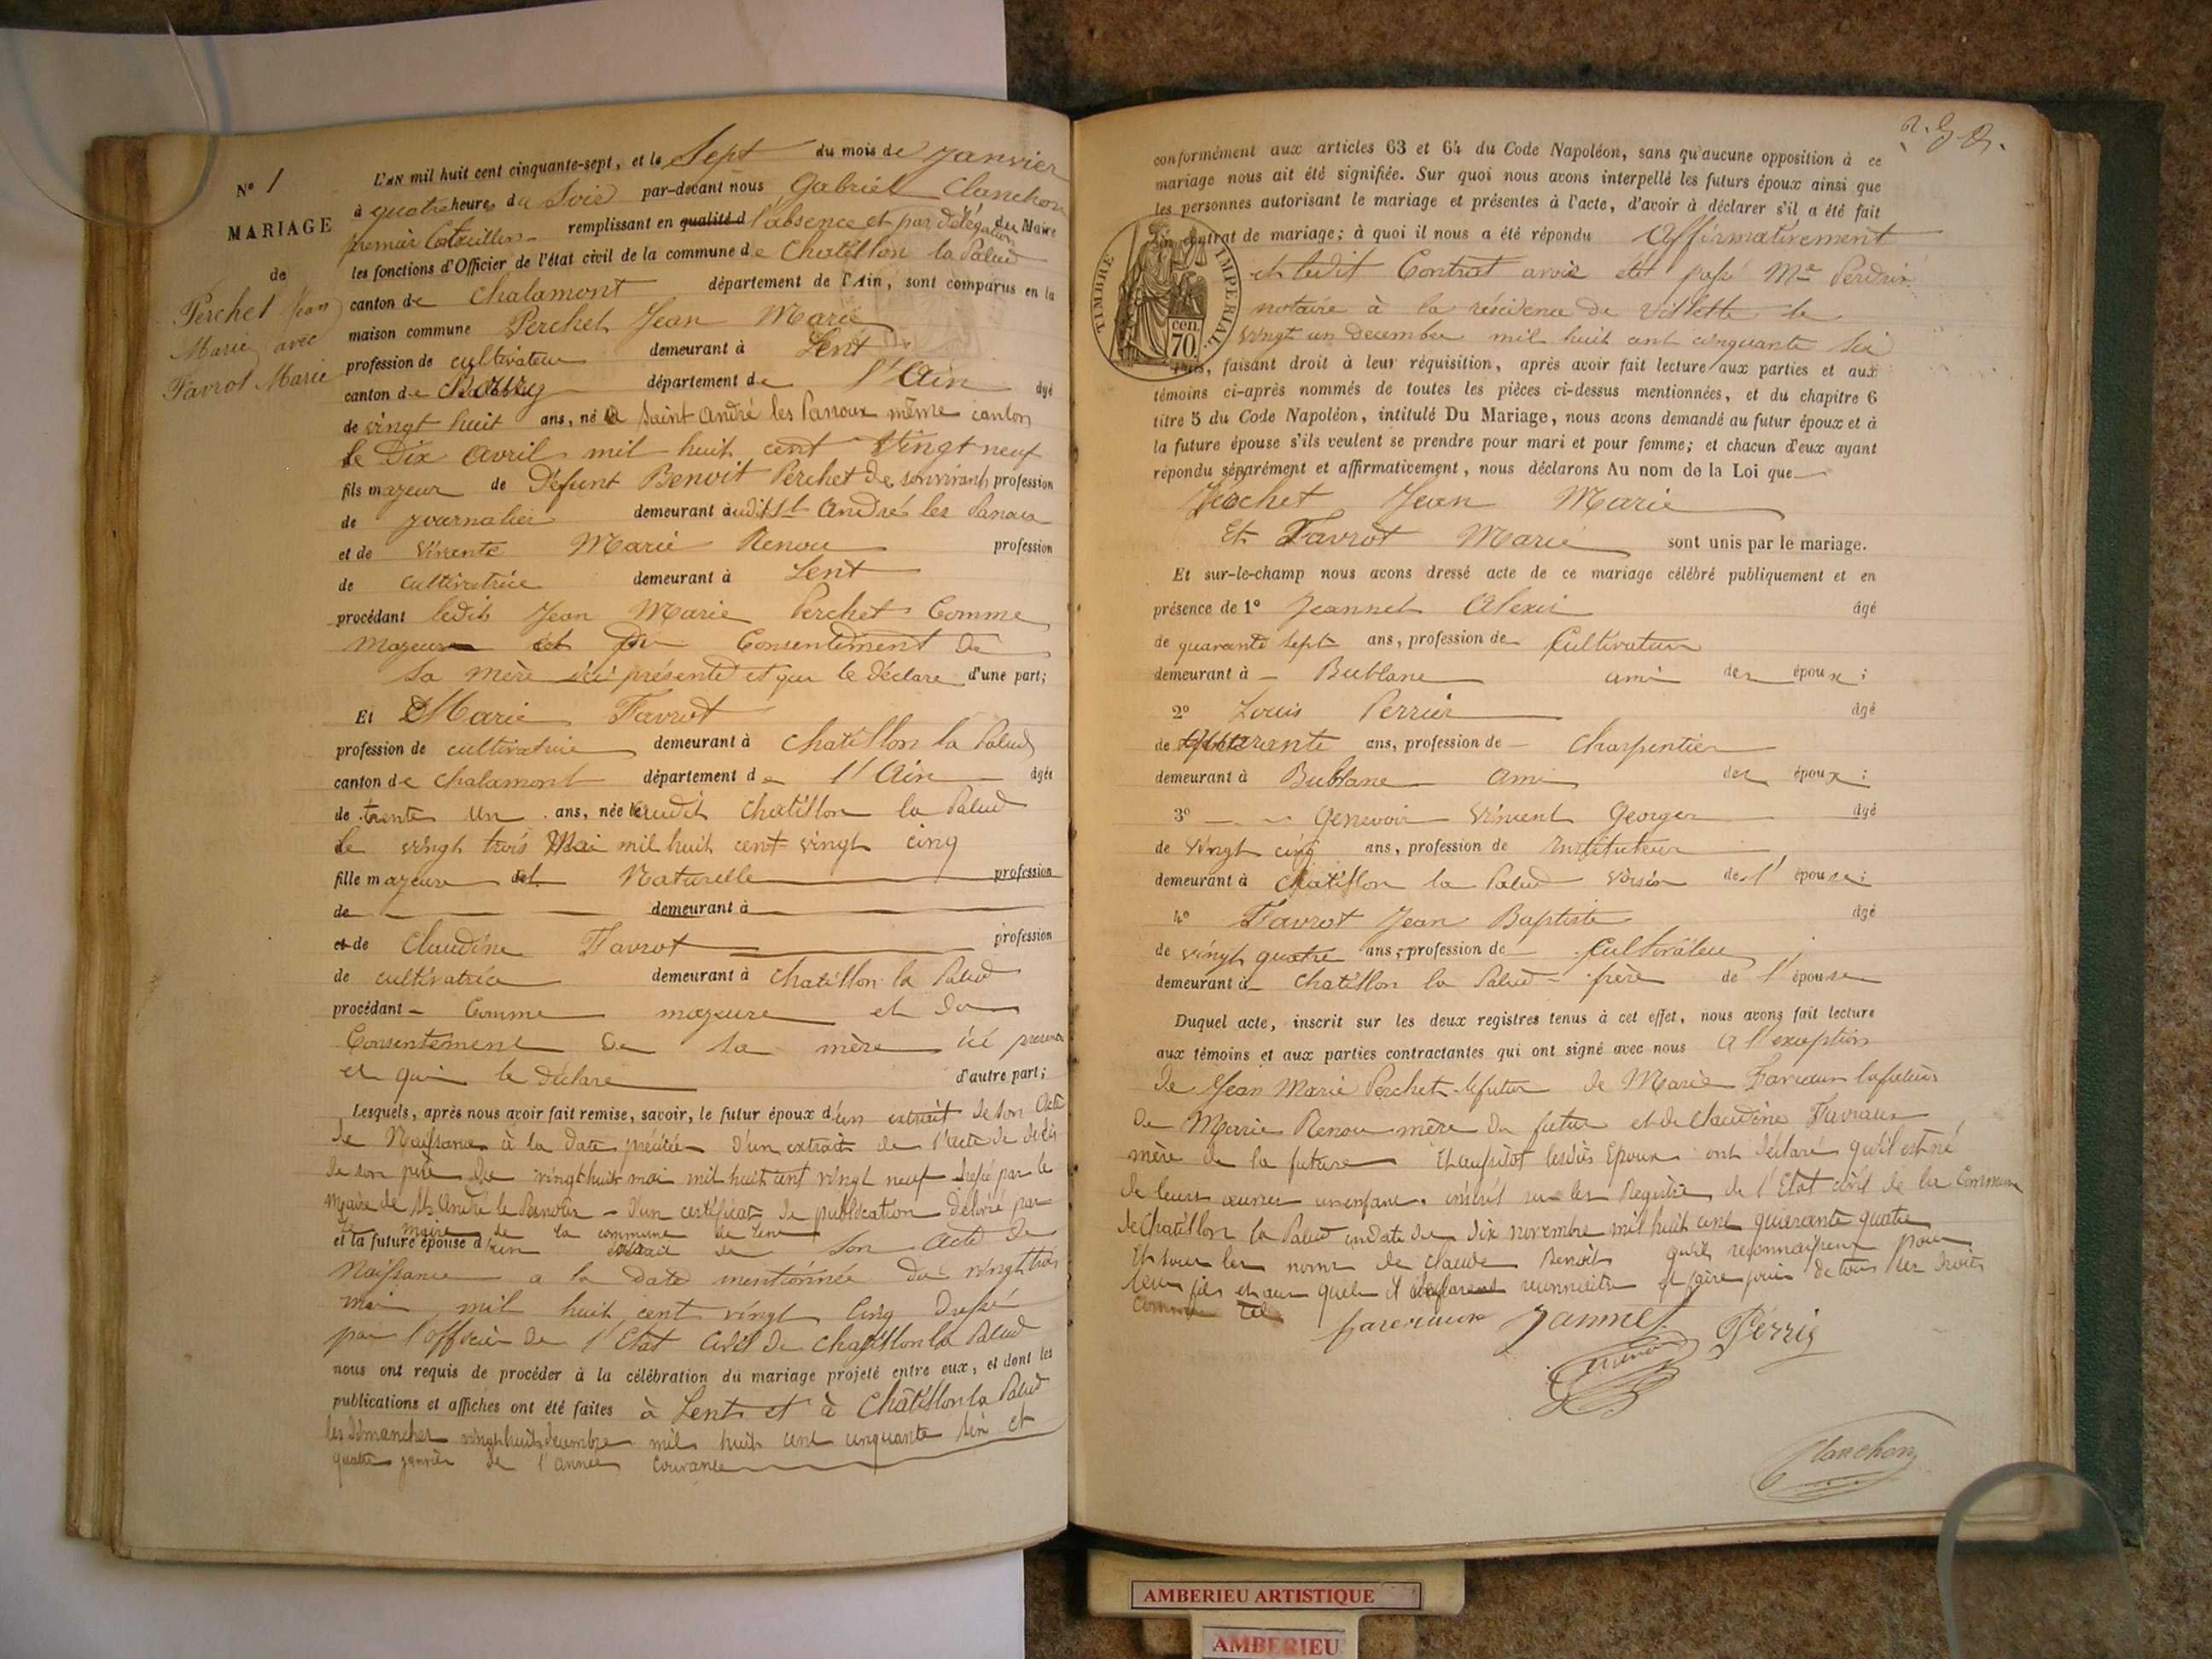 N° 1
MARIAGE
de
Perchet Jean
Marie avec
Favrot Marie
L'AN mil huit cent cinquante-sept, et le Sept du mois de Janvier
à quatre heures du Soir par-devant nous Gabriel Clanchon
premier Conseiller remplissant en qualité d l'absence et par délégation du Maire
les fonctions d'Officier de l'état civil de la commune de Chatillon la Palud
canton de Chalamont département de l'Ain, sont comparus en la
maison commune Perchet Jean Marie
profession de cultivateur demeurant à Lent
canton de Bourg département de l'Ain âgé
de vingt huit ans, né à Saint André les Panoux même canton
le Dix Avril mil huit cent Vingt neuf
fils majeur de Défunt Benoit Perchet de son vivant profession
de journalier demeurant audit St André les Panoux
et de vivante Marie Renou profession
de cultivatrice demeurant à Lent
procédant ledit Jean Marie Perchet Comme
majeur et du Consentement de
sa mère ici présente et qui le déclare d'une part;
Et Marie Favrot
profession de cultivatrice demeurant à Chatillon la Palud
canton de Chalamont département de l'Ain âgée
de trente un ans, née audit Chatillon la Palud
le vingt trois Mai mil huit cent vingt cinq
fille majeure et Naturelle profession
de demeurant à
et de Claudine Favrot profession
de cultivatrice demeurant à Chatillon la Palud
procédant Comme majeure et du
Consentement de sa mère ici présente
et qui le déclare d'autre part;
Lesquels, après nous avoir fait remise, savoir, le futur époux d'un extrait de son Acte
de Naissance à la date précitée d'un extrait de l'acte de décès
de son père du vingt huit mai mil huit cent vingt neuf dressé par le
Maire de St André le Panoux - d'un certificat de publication délivré par
le Maire de la commune de Lent
et la future épouse d'un extrait de son acte de
Naissance a la date mentionnée du vingt trois
mai mil huit cent vingt cinq dressé
par l'officier de l'Etat civil de Chatillon la Palud
nous ont requis de procéder à la célébration du mariage projeté entre eux, et dont les
publications et affiches ont été faites à Lent et à Chatillon la Palud
les dimanches vingt huit décembre mil huit cent cinquante six et
quatre janvier de l'année courante
conformément aux articles 63 et 64 du Code Napoléon, sans qu'aucune opposition à ce
mariage nous ait été signifiée. Sur quoi nous avons interpellé les futurs époux ainsi que
les personnes autorisant le mariage et présentes à l'acte, d'avoir à déclarer s'il a été fait
un contrat de mariage; à quoi il nous a été répondu Affirmativement
et ledit Contrat avoir été passé Me Perdrix
notaire à la résidence de Villette le
vingt un decembre mil huit cent cinquante six
TIMBRE IMPERIAL
70 cen.
Puis, faisant droit à leur réquisition, après avoir fait lecture aux parties et aux
témoins ci-après nommés de toutes les pièces ci-dessus mentionnées, et du chapitre 6
titre 5 du Code Napoléon, intitulé Du Mariage, nous avons demandé au futur époux et à
la future épouse s'ils veulent se prendre pour mari et pour femme; et chacun d'eux ayant
répondu séparément et affirmativement, nous déclarons Au nom de la Loi que
Perchet Jean Marie
Et Favrot Marie sont unis par le mariage.
Et sur-le-champ nous avons dressé acte de ce mariage célébré publiquement et en
présence de 1° Jeannet Alexis âgé
de quarante sept ans, profession de Cultivateur
demeurant à Bublane ami des époux;
2° Louis Perrier âgé
de quarante ans, profession de Charpentier
demeurant à Bublane ami des époux;
3° Genevoir Vincent Georges âgé
de vingt cinq ans, profession de Instituteur
demeurant à Chatillon la Palud voisin de l'épouse;
4° Favrot Jean Baptiste âgé
de vingt quatre ans, profession de Cultivateur
demeurant à Chatillon la Palud frère de l'épouse
Duquel acte, inscrit sur les deux registres tenus à cet effet, nous avons fait lecture
aux témoins et aux parties contractantes qui ont signé avec nous A l'exception
de Jean Marie Perchet le futur de Marie la future
de Marie Renou mère du futur et de Claudine
mère de la future Et aussitôt lesdits Epoux ont déclaré qu'il est né
de leurs œuvres un enfant inscrit sur les Registres de l'Etat civil de la Commune
de Chatillon la Palud en date du dix novembre mil huit cent quarante quatre
Et sous les noms de Claude Benoit qu'ils reconnaissent pour
leur fils et aux quels il déclarent reconnaitre et faire jouir de tous les droits
comme tel
Jannet Perrier
Clanchon
AMBERIEU ARTISTIQUE
AMBERIEU